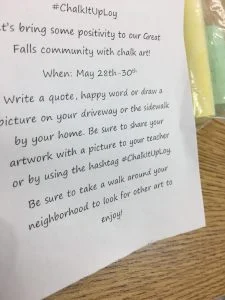 #ChalkItUpLoy
t's bring some positivity to our Great
Falls community with chalk art!
When: May 28th-30th
Write a quote, happy word or draw a
picture on your driveway or the sidewalk
by your home. Be sure to share your
artwork with a picture to your teacher
or by using the hashtag #ChalkItUpLoy.
Be sure to take a walk around your
neighborhood to look for other art to
enjoy!